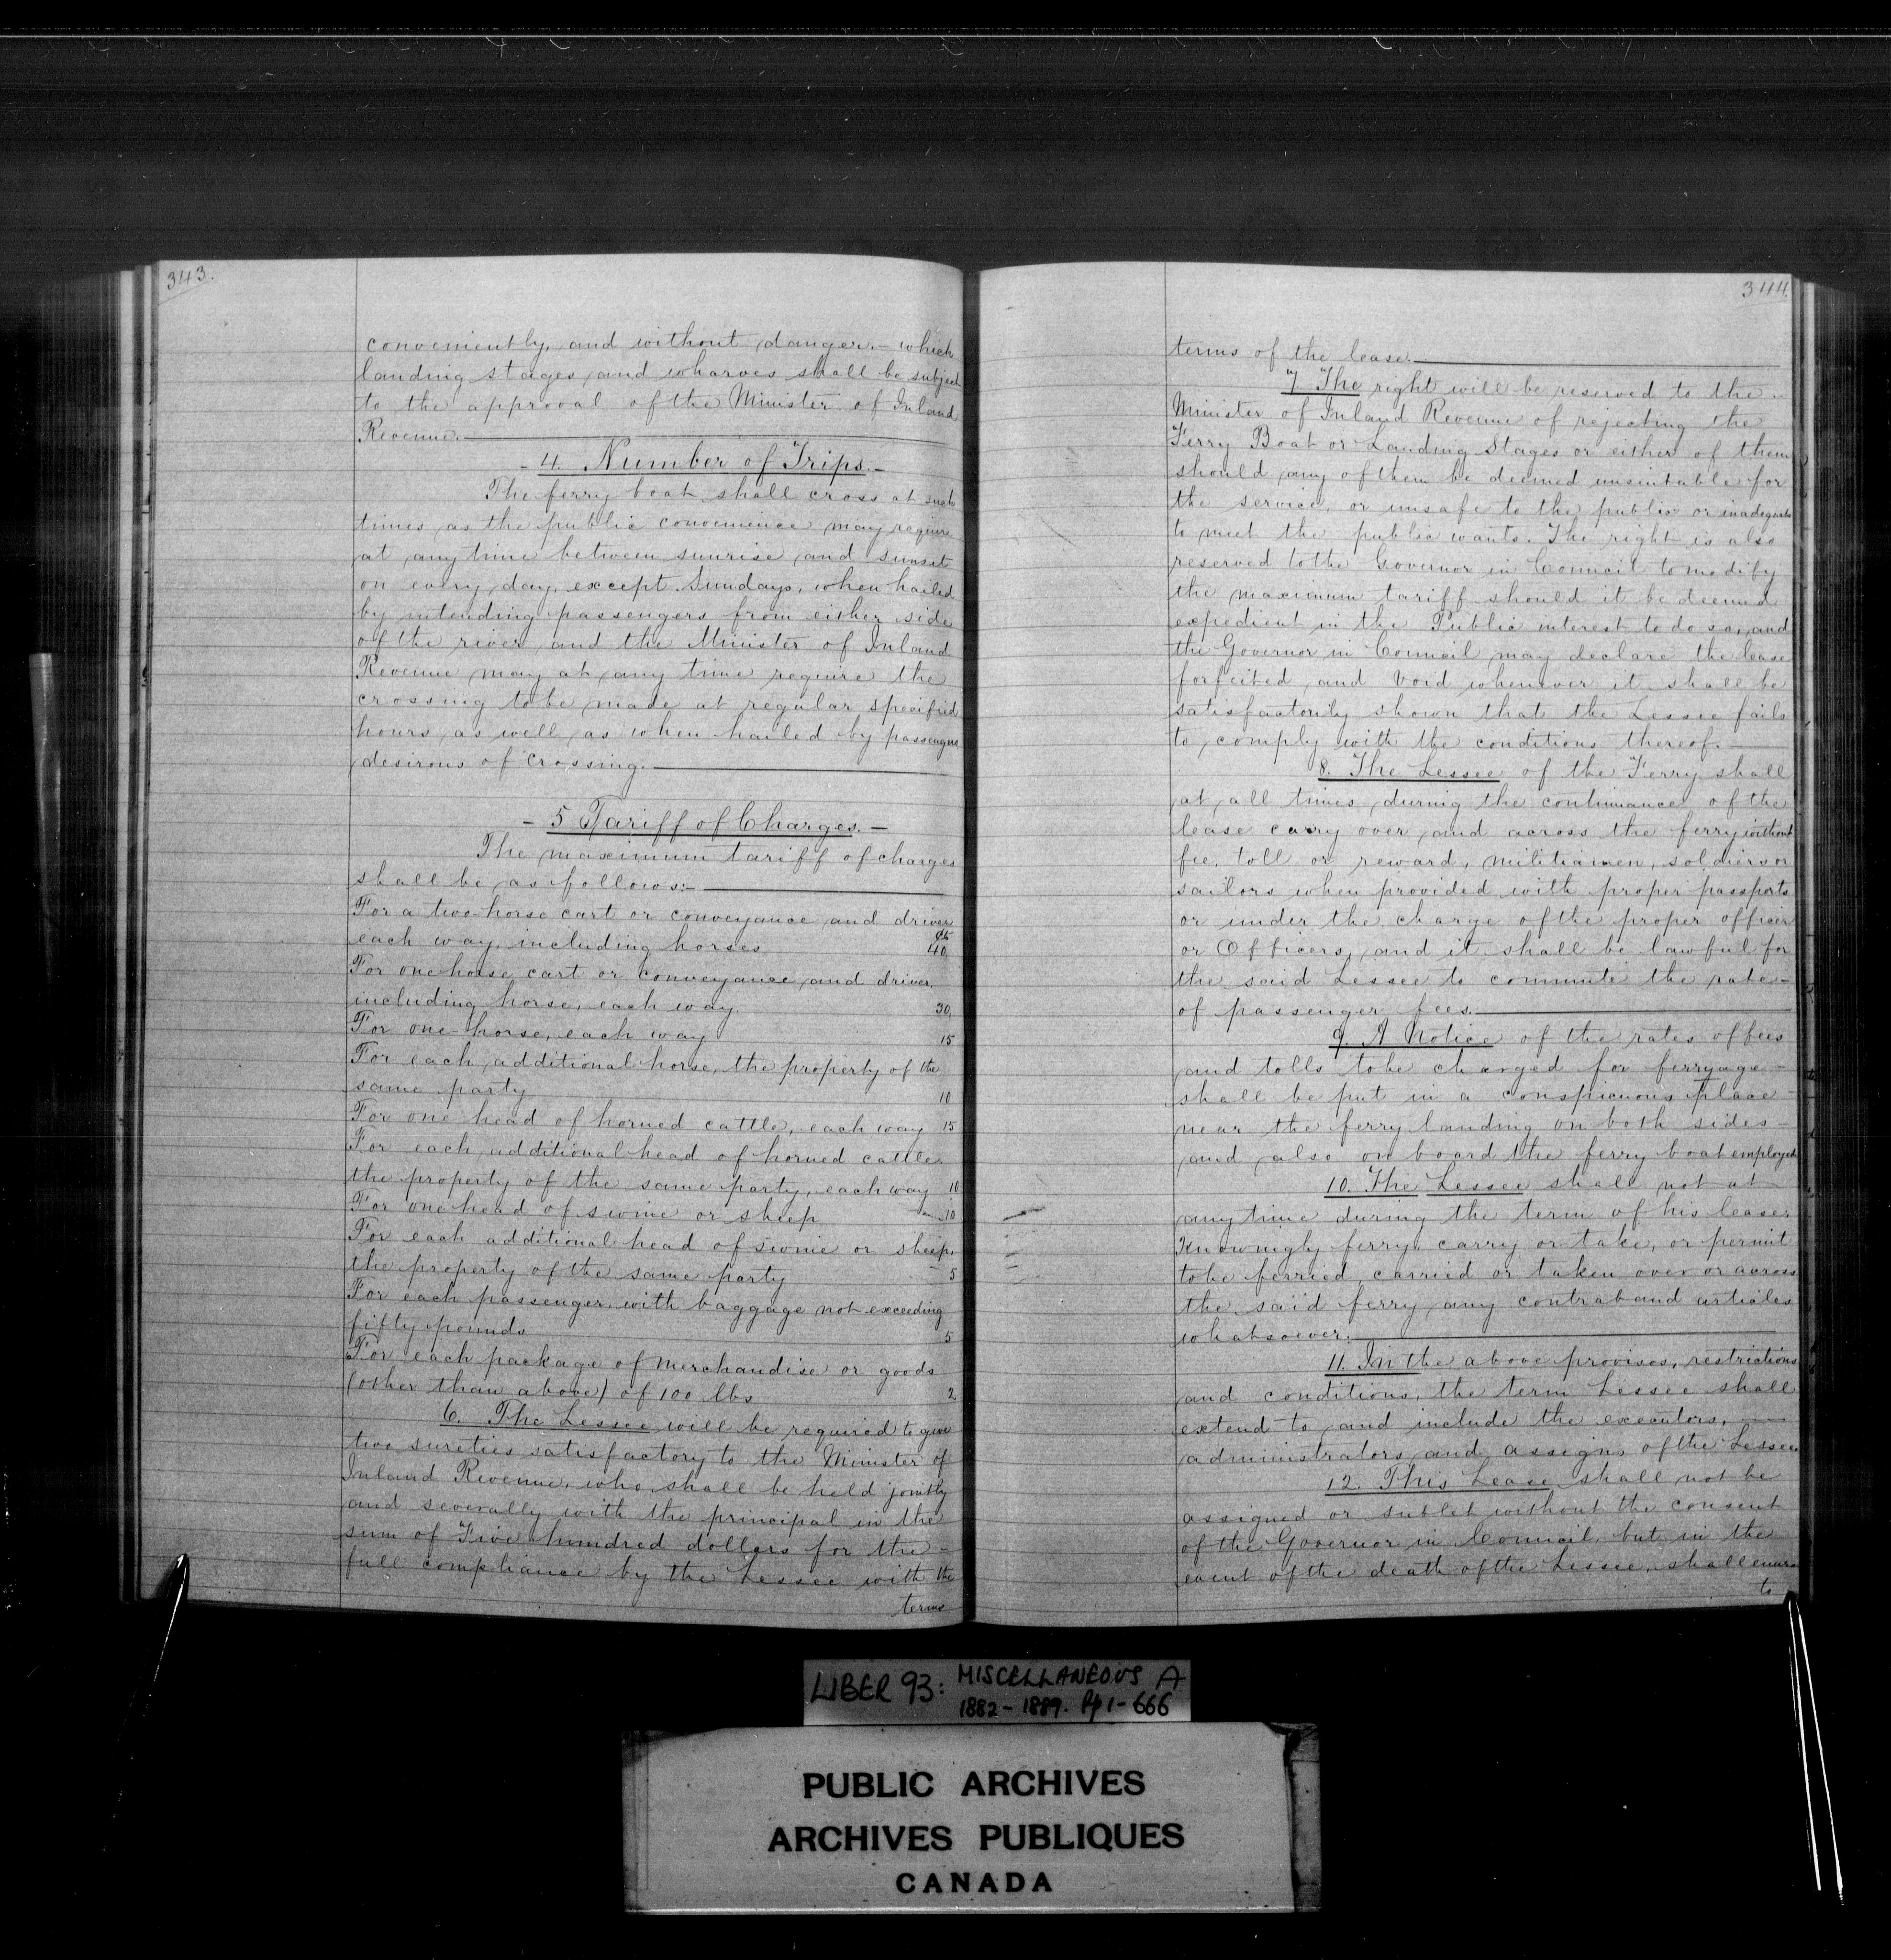 343.
conveniently, and without danger.- which
landing stages, and wharves shall be subject
to the approval of the Minister of Inland
Revenue.
- 4. Number of Trips.-
The ferry boat shall cross at such
times as the public convenience may require
at any time between sunrise and sunset
on every day, except Sundays, when hailed
by intending passengers from either side
of the river, and the Minister of Inland
Revenue may at any time require the
crossing to be made at regular specified
hours, as well as when hailed by passengers
desirous of crossing.
- 5 Tariff of Charges. -
The maximum tariff of charges
shall be as follows:-
For a two-horse cart or conveyance and driver
each way, including horses cts 40.
For one horse cart or conveyance and driver,
including horse, each way. 30.
For one horse, each way 15
For each additional horse, the property of the
same party 10
For one head of horned cattle, each way 15
For each additional head of horned cattle
the property of the same party, each way 10
For one head of swine or sheep 10
For each additional head of swine or sheep,
the property of the same party 5
For each passenger, with baggage not exceeding
fifty pounds 5
For each package of merchandise or goods
(other than above) of 100 lbs 2
6. The Lessee will be required to give
two sureties satisfactory to the Minister of
Inland Revenue, who shall be held jointly
and severally with the principal in the
sum of Five hundred dollars for the -
full compliance by the Lessee with the
terms
344
terms of the lease.
7. The right will be reserved to the -
Minister of Inland Revenue of rejecting the
Ferry Boat or Landing Stages or either of them
should any of them be deemed unsuitable for
the service, or unsafe to the public or inadequate
to meet the public wants. The right is also
reserved to the Governor in Council to modify
the maximum tariff should it be deemed
expedient in the Public interest to do so, and
the Governor in Council may declare the lease
forfeited, and void whenever it shall be
satisfactorily shown that the Lessee fails
to comply with the conditions thereof.
8. The Lessee of the Ferry shall
at all times during the continuance of the
lease carry over and across the ferry without
fee, toll or reward, militiamen, soldiers or
sailors when provided with proper passports
or under the charge of the proper officer
or Officers, and it shall be lawful for
the said Lessee to commute the rate -
of passenger fees.
9. A Notice of the rates of fees
and tolls to be charged for ferryage -
shall be put in a conspicuous place -
near the ferry landing on both sides -
and also on board the ferry boat employed
10. The Lessee shall not at
any time during the term of his lease,
knowingly ferry, carry or take, or permit
to be ferried, carried or taken over or across
the said ferry any contraband articles
whatsoever.
11. In the above provisos, restrictions
and conditions, the term Lessee shall
extend to and include the executors,
administrators, and assigns of the Lessee.
12. This Lease shall not be
assigned or sublet without the consent
of the Governor in Council, but in the
event of the death of the Lessee, shall enure
to
LIBER 93: MISCELLANEOUS A
1882-1889. Pp 1-666
PUBLIC ARCHIVES
ARCHIVES PUBLIQUES
CANADA